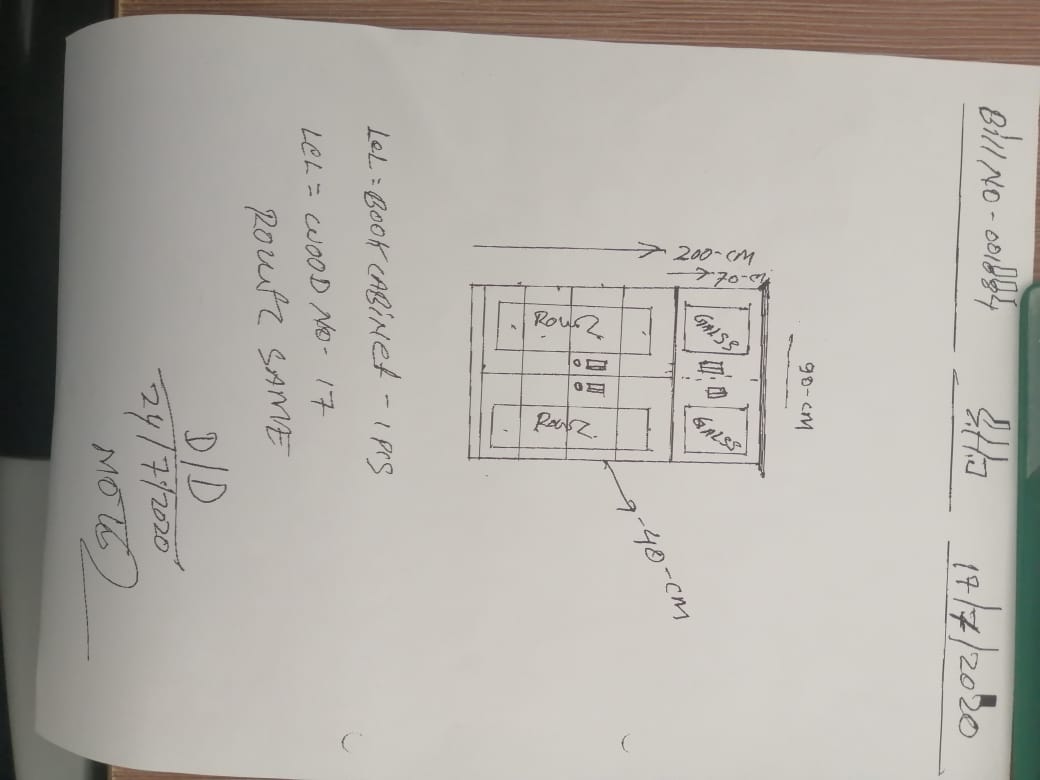 Bill NO - 001884
S.H.J
17/7/2020
90-CM
200-CM
70-CM
GALSS
GALSS
40-CM
LCL = BOOK CABiNET - 1 PCS
LCL = WOOD NO - 17
SAME
D/D
24/7/2020